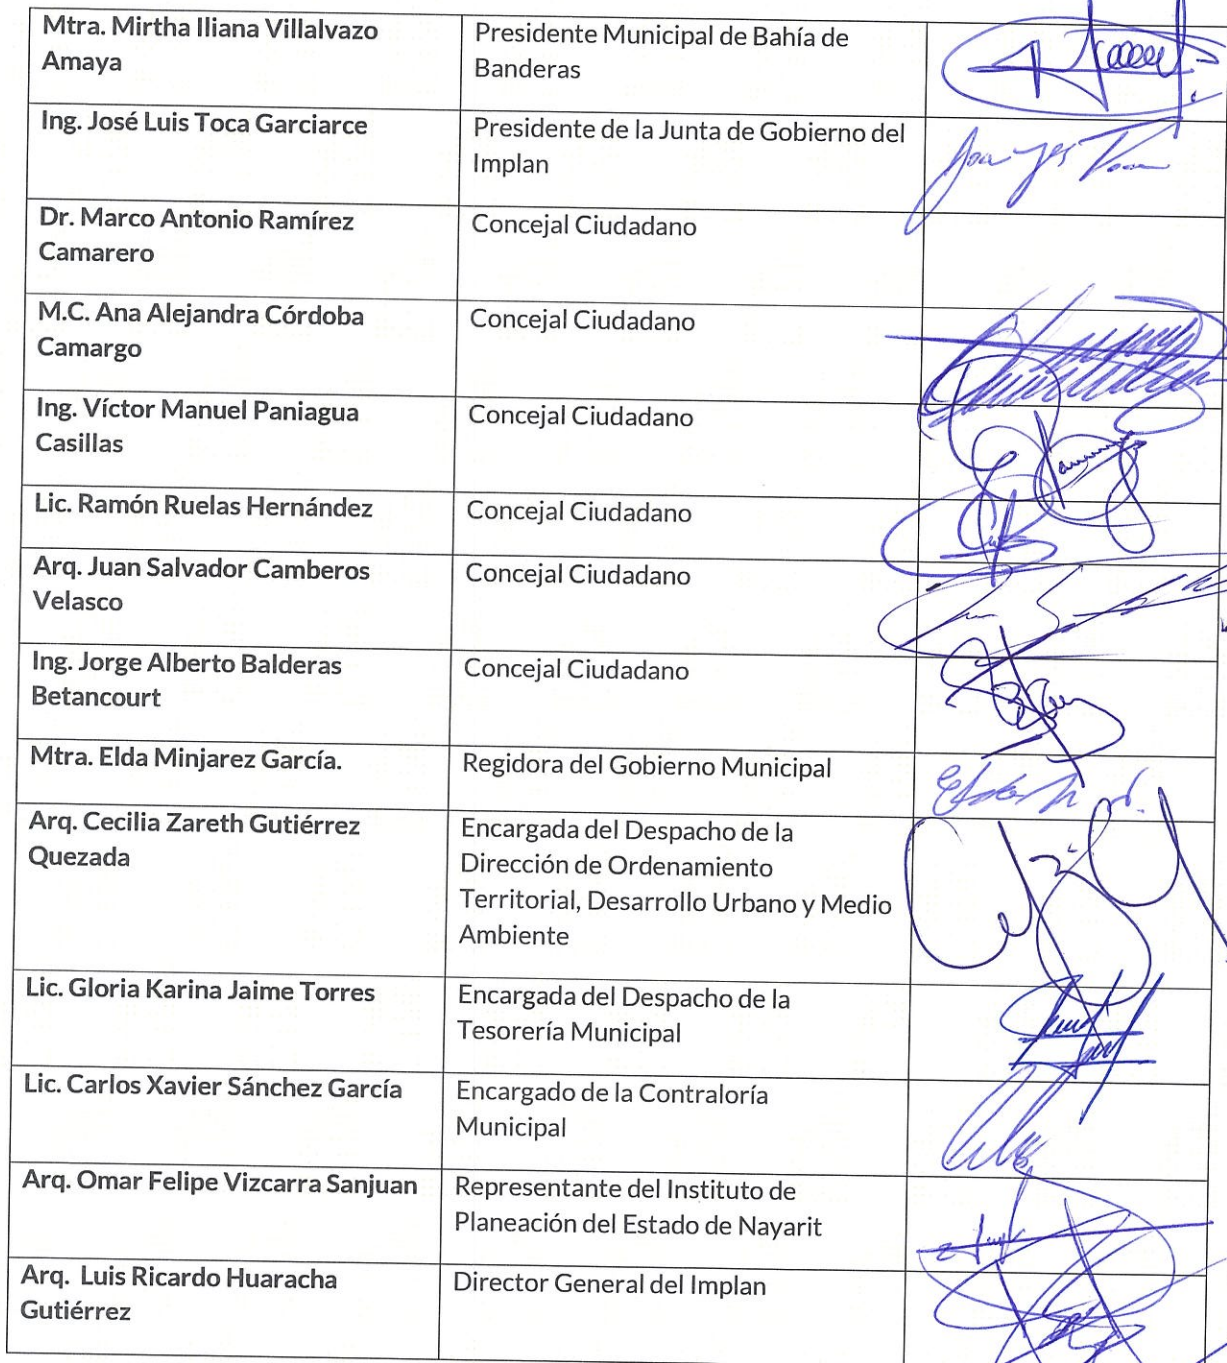 Mtra. Mirtha Iliana Villalvazo
Amaya
Presidente Municipal de Bahía de
Banderas
Ing. José Luis Toca Garciarce
Presidente de la Junta de Gobierno del
Implan
Dr. Marco Antonio Ramírez
Camarero
Concejal Ciudadano
M.C. Ana Alejandra Córdoba
Camargo
Concejal Ciudadano
Ing. Víctor Manuel Paniagua
Casillas
Concejal Ciudadano
Lic. Ramón Ruelas Hernández
Concejal Ciudadano
Arq. Juan Salvador Camberos
Velasco
Concejal Ciudadano
Ing. Jorge Alberto Balderas
Betancourt
Concejal Ciudadano
Mtra. Elda Minjarez García.
Regidora del Gobierno Municipal
Arq. Cecilia Zareth Gutiérrez
Quezada
Encargada del Despacho de la
Dirección de Ordenamiento
Territorial, Desarrollo Urbano y Medio
Ambiente
Lic. Gloria Karina Jaime Torres
Encargada del Despacho de la
Tesorería Municipal
Lic. Carlos Xavier Sánchez García
Encargado de la Contraloría
Municipal
Arq. Omar Felipe Vizcarra Sanjuan
Representante del Instituto de
Planeación del Estado de Nayarit
Arq. Luis Ricardo Huaracha
Gutiérrez
Director General del Implan